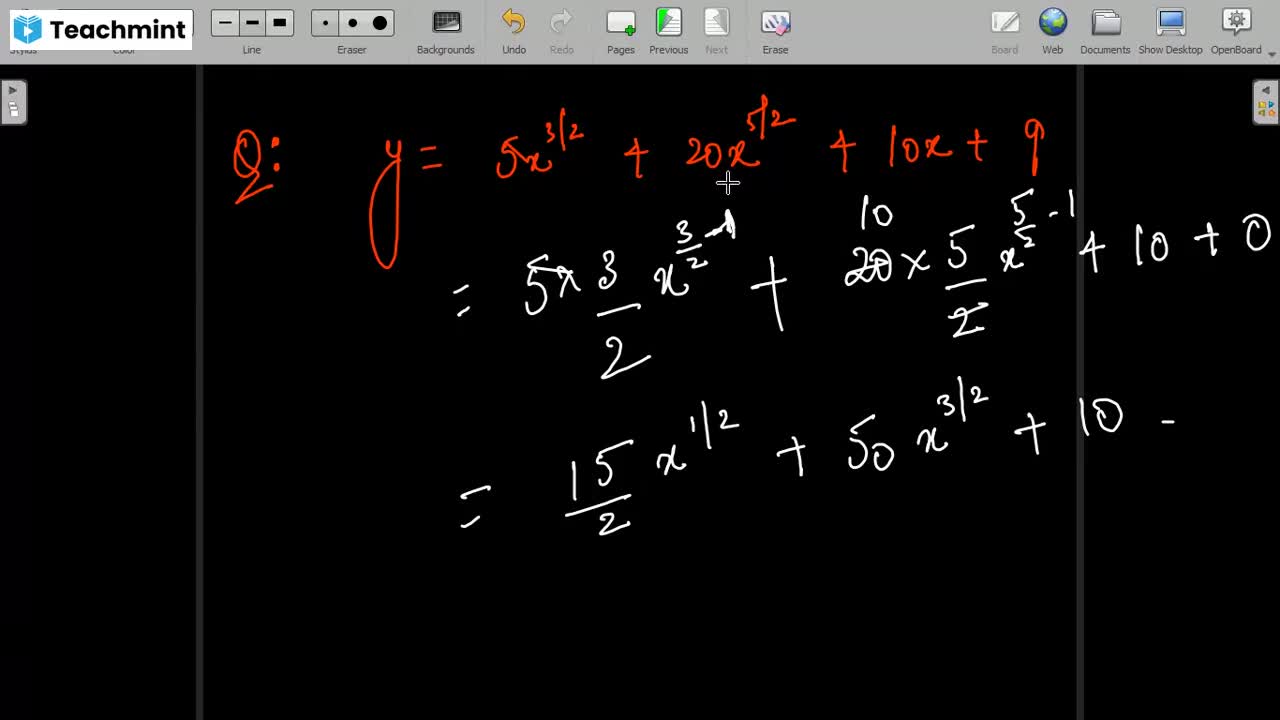 Teachmint
Styles Color Line Eraser Backgrounds Undo Redo Pages Previous Next Erase Board Web Documents Show Desktop OpenBoard
Q: y = 5x^{3/2} + 20x^{5/2} + 10x + 9
= 5 × \frac{3}{2} x^{\frac{3}{2} - 1} + \overset{10}{20} × \frac{5}{2} x^{\frac{5}{2} - 1} + 10 + 0
= \frac{15}{2} x^{1/2} + 50 x^{3/2} + 10 -